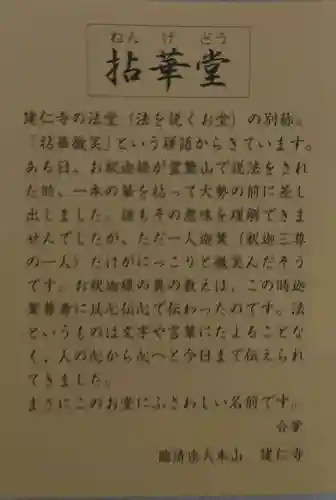 ねんげどう
拈華堂
建仁寺の法堂（法を説くお堂）の別称。
「拈華微笑」という禅語からきています。
ある日、お釈迦様が霊鷲山で説法をされ
た時、一本の華を拈って大勢の前に差し
出しました。誰もその意味を理解できま
せんでしたが、ただ一人迦葉（釈迦三尊
の一人）だけがにっこりと微笑んだそう
です。お釈迦様の真の教えは、この時迦
葉尊者に以心伝心で伝わったのです。法
というものは文字や言葉にたよることな
く、人の心から心へと今日まで伝えられ
てきました。
まさにこのお堂にふさわしい名前です。
合掌
臨済宗大本山 建仁寺